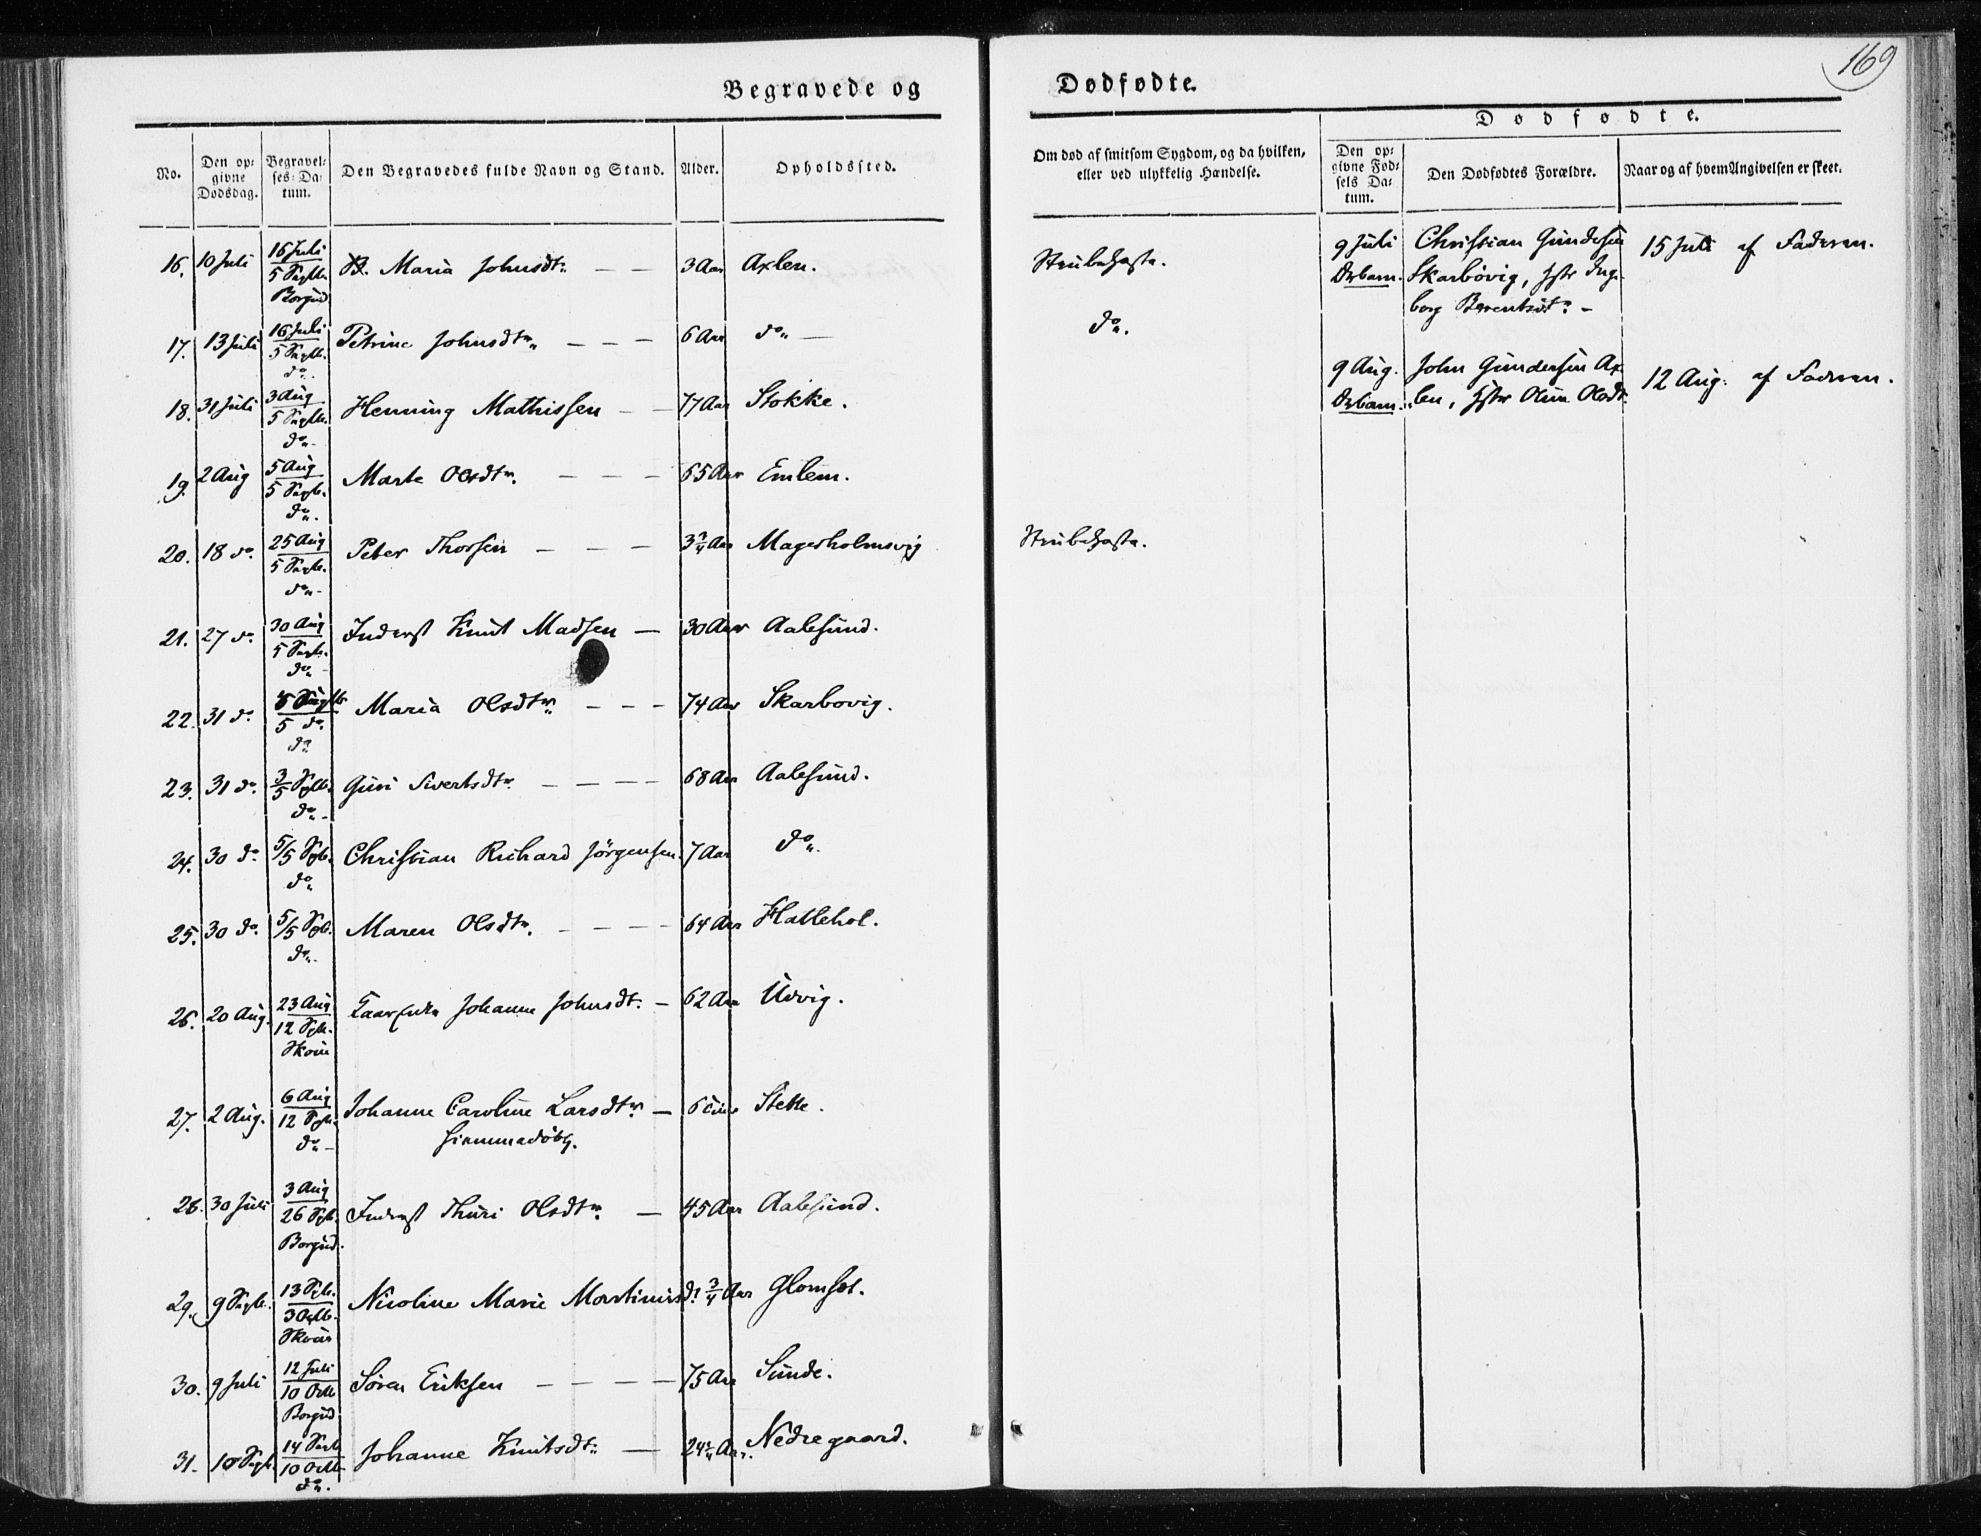 169
Begravede og Dødfødte.
No. Den opgivne Dødsdag. Begravelses-Datum. Den Begravedes fulde Navn og Stand. Alder. Opholdssted.
Om død af smitsom Sygdom, og da hvilken, eller ved ulykkelig Hændelse.
Dødfødte.
Den opgivne Fødsels Datum. Den Dødfødtes Forældre. Naar og af hvem Angivelsen er skeet.
16. 10 Juli 16 Juli / 5 Septb. Borgund Maria Johnsdtr. — — 3 Aar Axlen. Strubehoste.
17. 13 Juli 16 Juli / 5 Septb. do. Petrine Johnsdtr. — — — 6 Aar do. — do.
18. 31 Juli 3 Aug / 5 Septb. do. Henning Mathissen — — 77 Aar Stokke.
19. 2 Aug 5 Aug / 5 Septb. do. Marte Olsdtr. — — — 65 Aar Emlem.
20. 18 do. 25 Aug / 5 Septb. do. Peter Thorsen — — — Aar Magerholmsvig Strubehoste.
21. 27 do. 30 Aug / 5 Septb. do. Inderst Knut Madsen — 30 Aar Aalesund.
22. 31 do. 5 do. do. Maria Olsdtr. — — — 74 Aar Skarbovig.
23. 31 do. 3/5 Septb. do. Guri Sivertsdtr. — — — — 68 Aar Aalesund.
24. 30 do. 5/5 Sptb. do. Christian Richard Jørgensen. 7 Aar do.
25. 30 do. 5/5 Sptb. do. Maren Olsdtr. — — — — 64 Aar Hatlehol.
26. 20 Aug. 23 Aug / 12 Sptb. Skouu Johanne Johnsdt. — 62 Aar Udvig.
27. 2 Aug. 6 Aug / 12 Sptb. do. Johanne Caroline Larsdtr. — 6 Uger Stette.
hjemmedøbt.
28. 30 Juli 3 Aug / 26 Sptb. Borgund. Inderst Thuri Olsdtr. — 45 Aar Aalesund.
29. 9 Septb. 13 Sptb. / 3 Octb. Nicoline Marie Martinusd. 3/4 Aar Glomset.
30. 9 Juli 12 Juli / 10 Octb Borgund Søren Eriksen — — — — 75 Aar Sunde.
31. 10 Septb. 14 Septb / 10 Octb. do. Johanne Knutsdtr. — Aar. Nedregaard.
9 Juli Christian Gundersen 15 Juli af Faderen.
Drbarn. Skarbøvig, Hstr Inge-
borg Berentsdtr. —
9 Aug. John Gundersen Ax- 12 Aug: af Faderen.
Drbarn. len, Hstr Oline Olsdt.